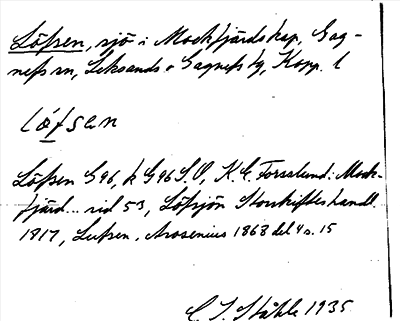 Löfsen, sjö i Mockfjärds kap, Gag-
nefs sn, Leksands o Gagnefs tg, Kopp. l
løfsen
Löfsen G 96, k G 96 S.O, K.E. Forsslund: Mock-
fjärd... sid 53, Löfsjön Storskifteshandl.
1817, Lufsen, Arosenius 1868 del 4 s. 15
C. I. Ståhle 1935